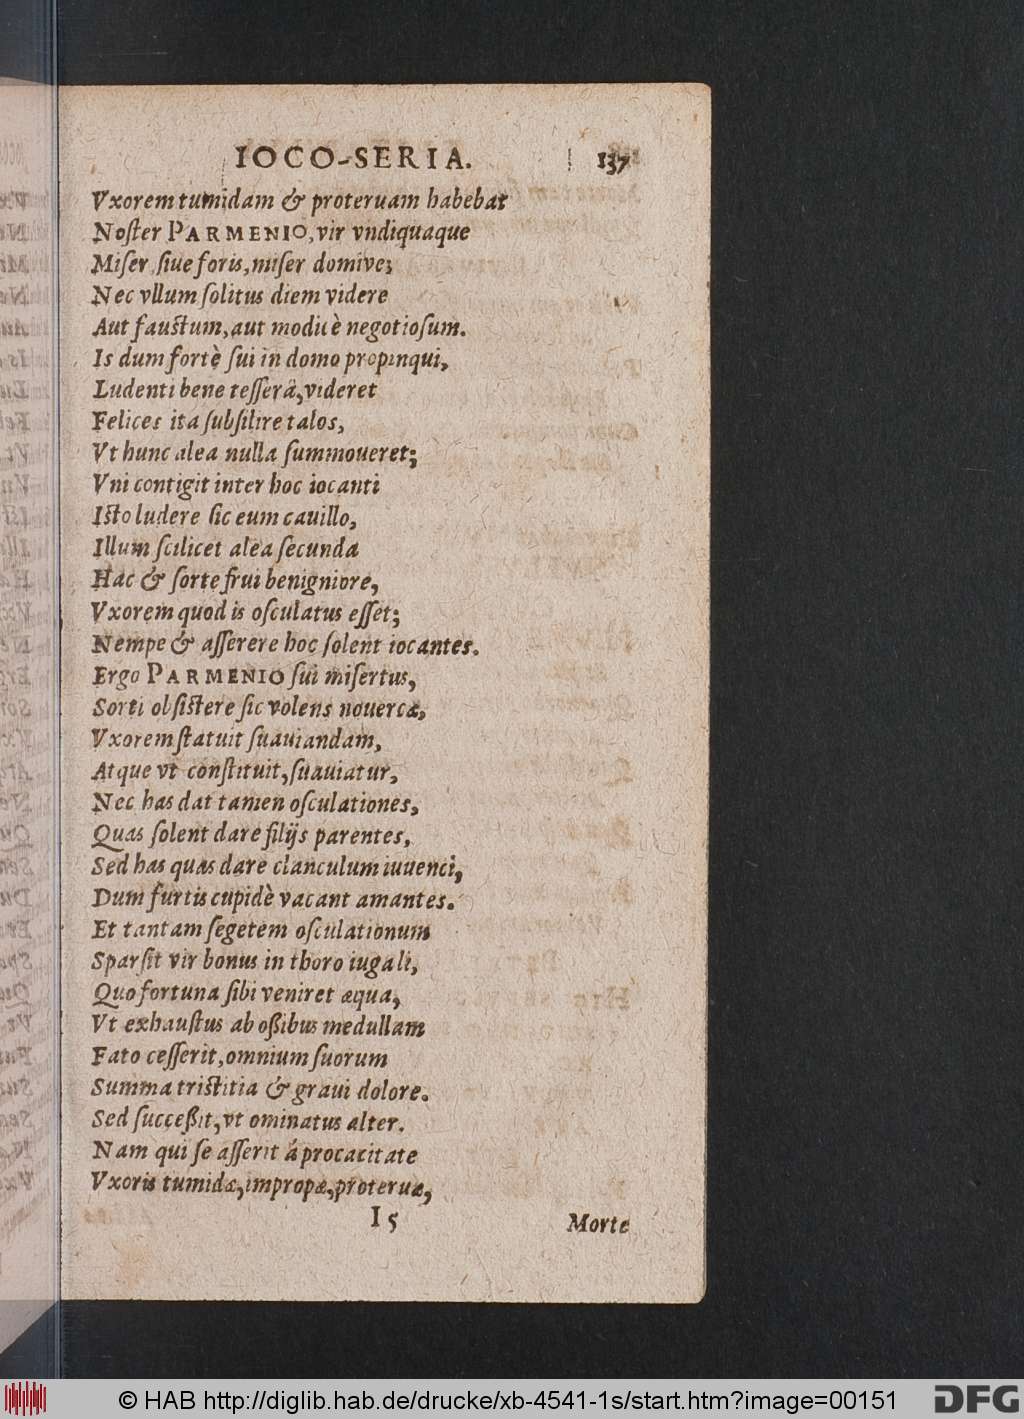 IOCO-SERIA. 137
Vxorem tumidam & proteruam habebat
Noſter PARMENIO, vir vndiquaque
Miſer ſiue foris, miſer domive;
Nec vllum ſolitus diem videre
Aut fauſtum, aut modicè negotioſum.
Is dum fortè ſui in domo propinqui,
Ludenti bene teſſerâ, videret
Felices ita ſubſilire talos,
Vt hunc alea nulla ſummoueret;
Vni contigit inter hoc iocanti
Iſto ludere ſic eum cauillo,
Illum ſcilicet alea ſecunda
Hac & ſorte frui benigniore,
Vxorem quod is oſculatus eſſet;
Nempe & aſſerere hoc ſolent iocantes.
Ergo PARMENIO ſui miſertus,
Sorti obſiſtere ſic volens nouercæ,
Vxorem ſtatuit ſuauiandam,
Atque vt conſtituit, ſuauiatur,
Nec has dat tamen oſculationes,
Quas ſolent dare filijs parentes,
Sed has quas dare clanculum iuuenci,
Dum furtis cupidè vacant amantes.
Et tantam ſegetem oſculationum
Sparſit vir bonus in thoro iugali,
Quo fortuna ſibi veniret æqua,
Vt exhauſtus ab oßibus medullam
Fato ceſſerit, omnium ſuorum
Summa triſtitia & graui dolore.
Sed ſucceßit, vt ominatus alter.
Nam qui ſe aſſerit á procacitate
Vxoris tumidæ, impropæ, proteruæ,
I 5 Morte
© HAB http://diglib.hab.de/drucke/xb-4541-1s/start.htm?image=00151 DFG